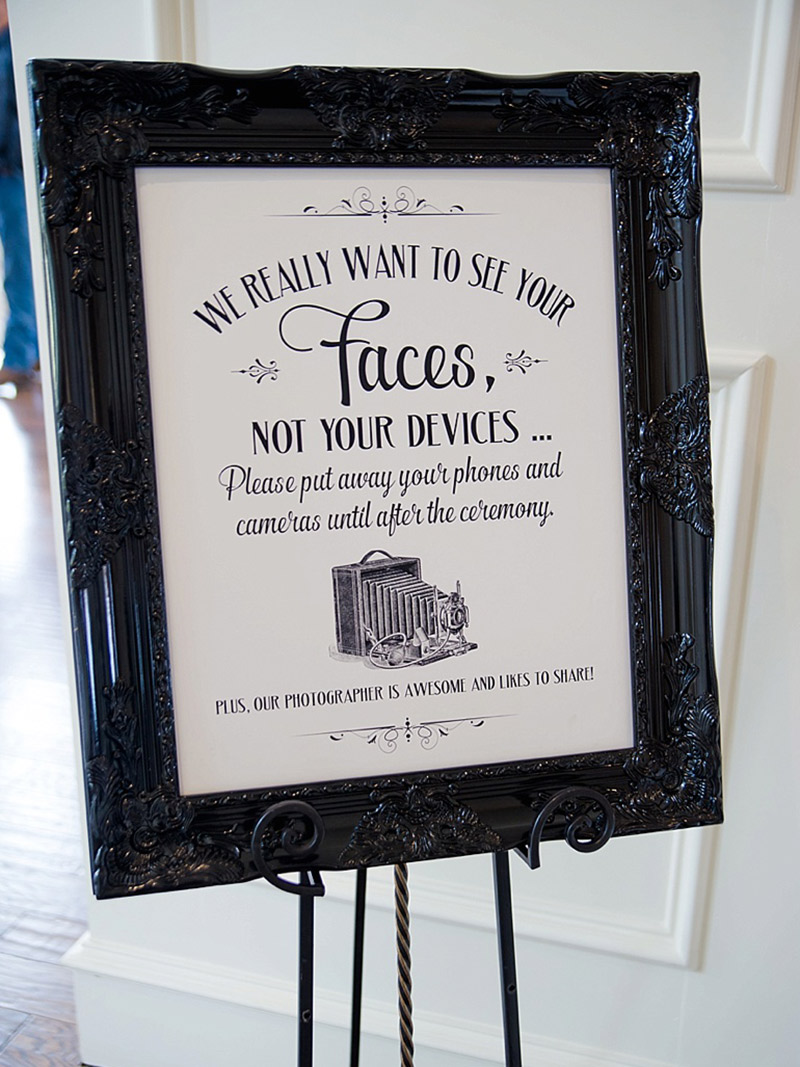 WE REALLY WANT TO SEE YOUR
Faces,
NOT YOUR DEVICES ...
Please put away your phones and
cameras until after the ceremony.
PLUS, OUR PHOTOGRAPHER IS AWESOME AND LIKES TO SHARE!